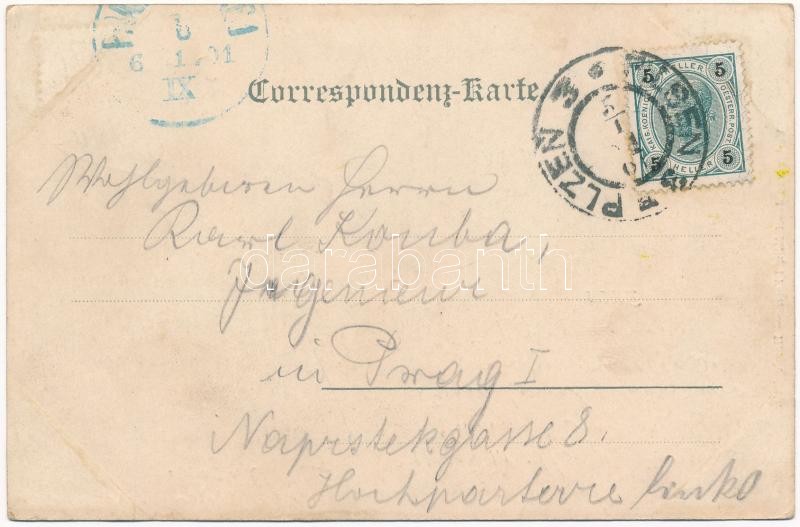 6 1 01
IX
Correspondenz-Karte
PILSEN PLZEŇ 3
5 5 5 5
HELLER HELLER
KAIS. KOENIGL. OESTERR. POST
Wohlgeboren Herrn
Karl Kouba,
Ingenieur
in Prag I
Naprstekgasse 8.
Hochparterre links
darabanth